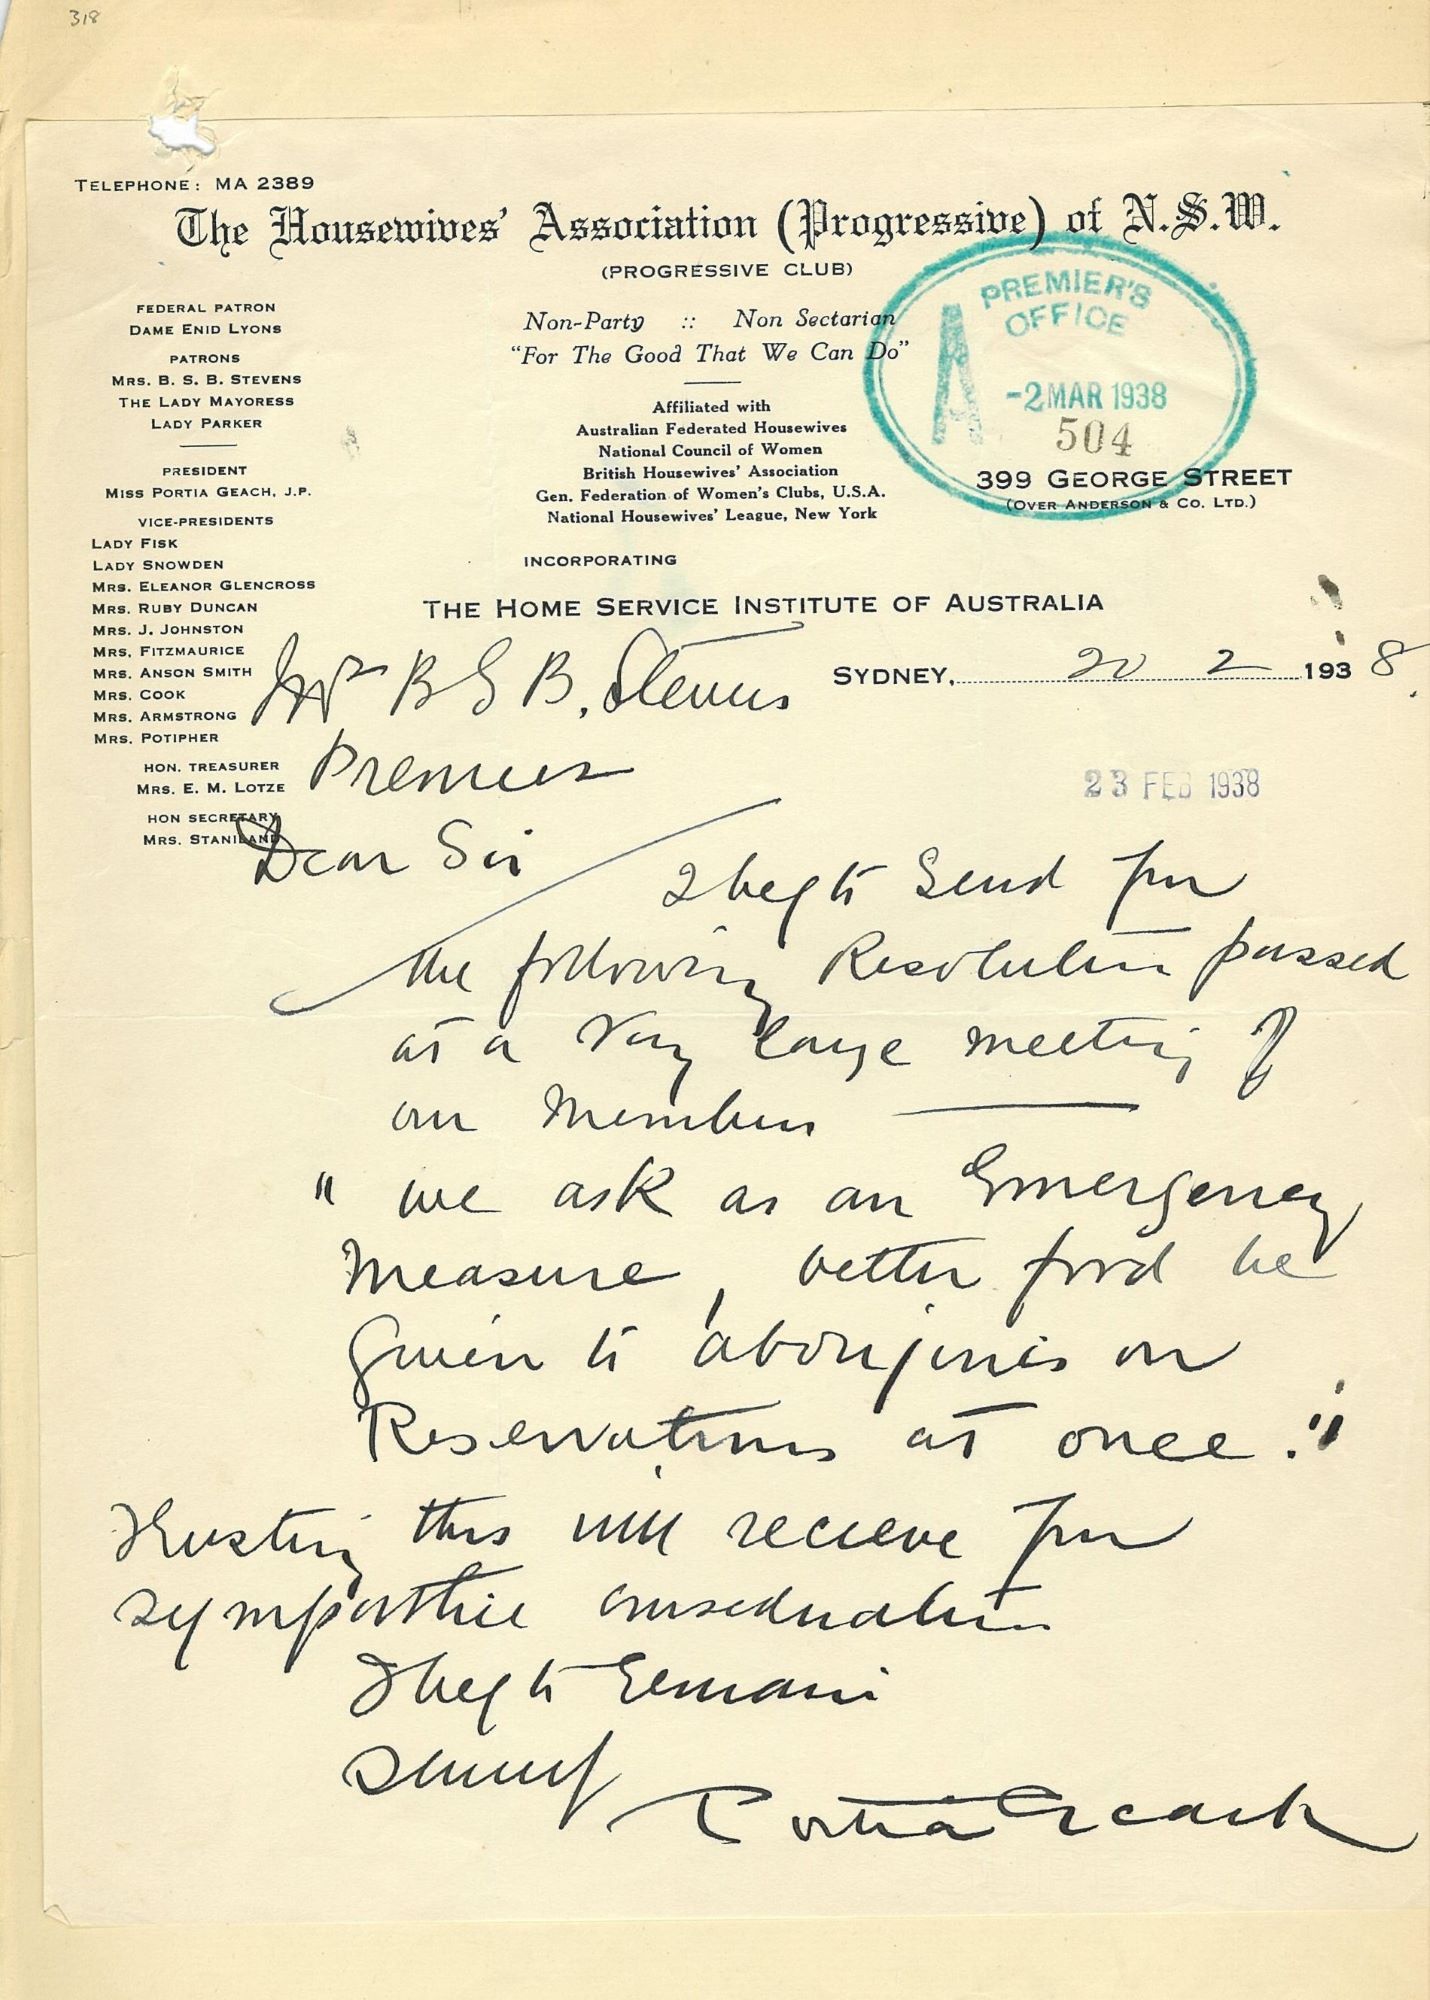 318
TELEPHONE: MA 2389
The Housewives' Association (Progressive) of N.S.W.
(PROGRESSIVE CLUB)
FEDERAL PATRON
DAME ENID LYONS
PATRONS
MRS. B. S. B. STEVENS
THE LADY MAYORESS
LADY PARKER
PRESIDENT
MISS PORTIA GEACH, J.P.
VICE-PRESIDENTS
LADY FISK
LADY SNOWDEN
MRS. ELEANOR GLENCROSS
MRS. RUBY DUNCAN
MRS. J. JOHNSTON
MRS. FITZMAURICE
MRS. ANSON SMITH
MRS. COOK
MRS. ARMSTRONG
MRS. POTIPHER
HON. TREASURER
MRS. E. M. LOTZE
HON SECRETARY
MRS. STANILAND
Non-Party :: Non Sectarian
"For The Good That We Can Do"
Affiliated with
Australian Federated Housewives
National Council of Women
British Housewives' Association
Gen. Federation of Women's Clubs, U.S.A.
National Housewives' League, New York
INCORPORATING
THE HOME SERVICE INSTITUTE OF AUSTRALIA
PREMIER'S
OFFICE
A
-2 MAR 1938
504
399 GEORGE STREET
(OVER ANDERSON & CO. LTD.)
SYDNEY, 20 2 1938.
Mr B S B. Stevens
Premier
23 FEB 1938
Dear Sir
I beg to send you
the following Resolution passed
at a very large meeting of
our Members
" we ask as an Emergency
Measure, better food be
Given to aborigines on
Reservations at once."
Trusting this will recieve your
sympathic consideration
I beg to remain
Sincerely
Portia Geach